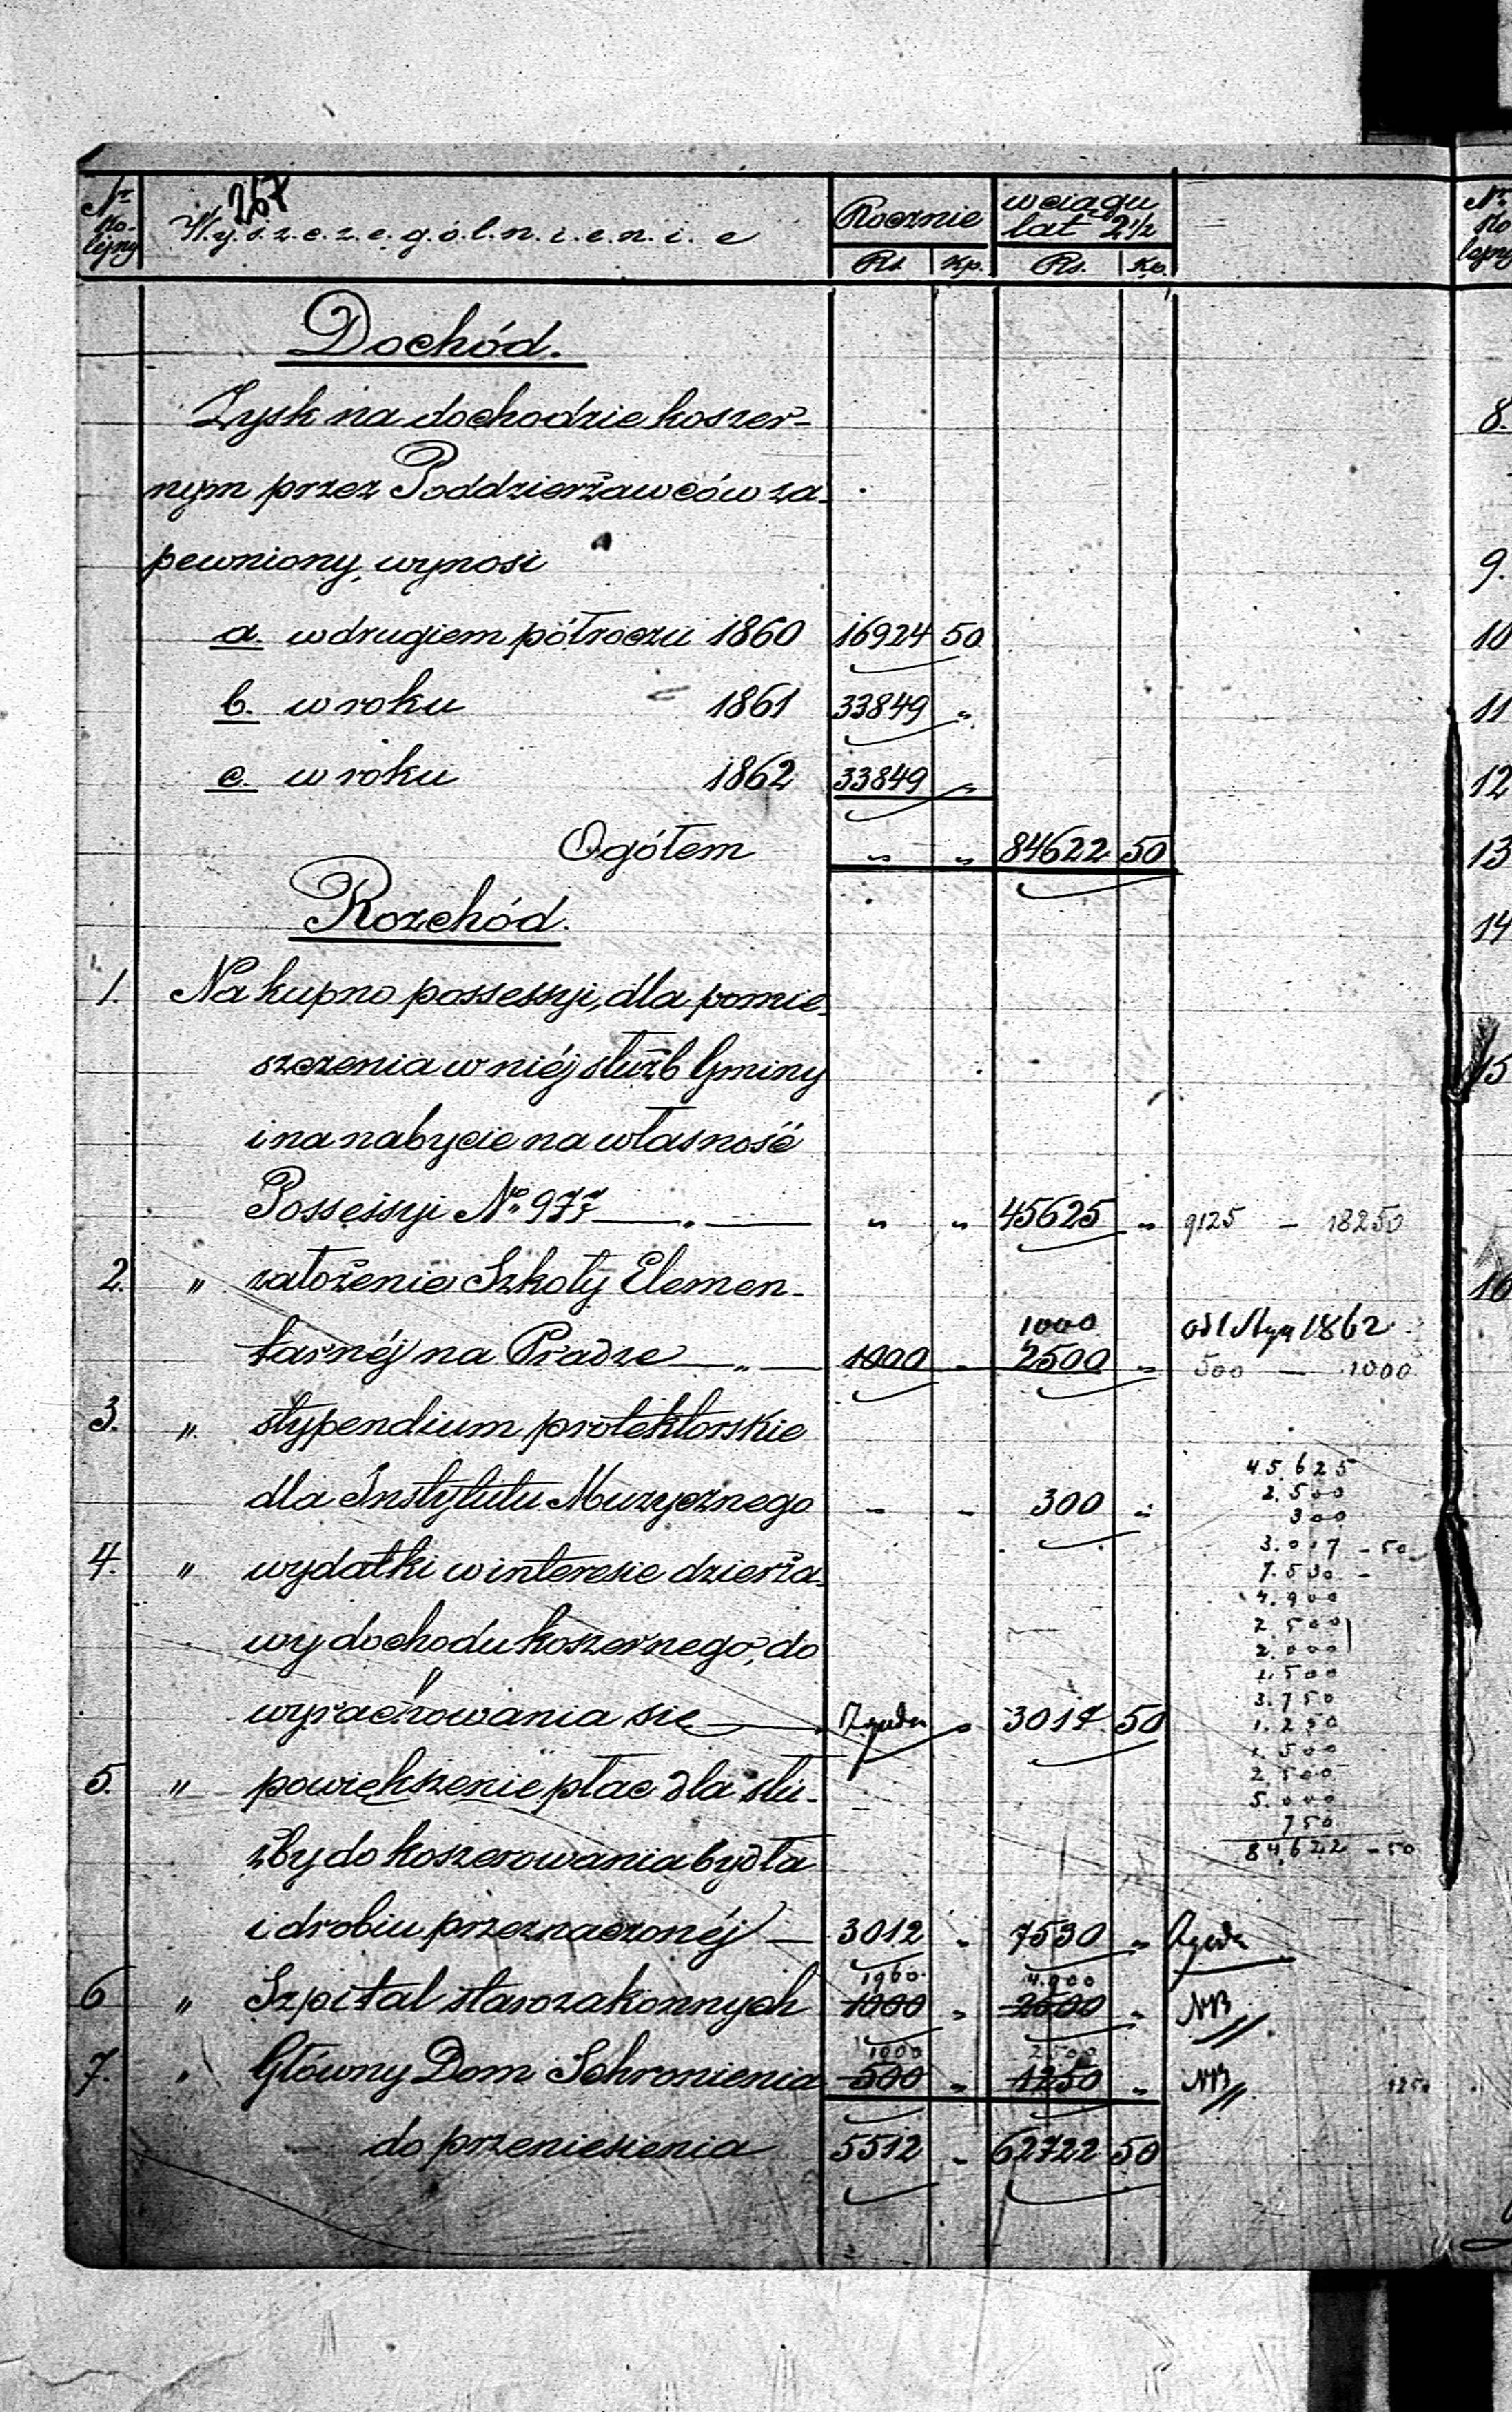 267
Nr Kolejny Wyszczególnienie Rocznie w ciągu lat 2 1/2
Rs. Kp. Rs. Kp.
Dochód.
Zysk na dochodzie koszer-
nym przez Poddzierżawców za-
pewniony, wynosi
a. w drugiem półroczu 1860 16924 50
b. w roku 1861 33849 "
c. w roku 1862 33849 "
Ogółem " " 84622 50
Rozchód.
1. Na kupno possessyi, dla pomie-
szczenia w niéj służb Gminy
i na nabycie na własność
Possessyi No 977 " " 45625 " 9125 — 18250
2. " założenie Szkoły Elemen-
1000 od 1 1862
tarnéj na Pradze — " — 1000 " 2500 " 500 — 1000
3. " stypendium protektorskie
dla Instytutu Muzycznego " " 300 "
4. " wydatki w interesie dzierża-
wy dochodu koszernego, do
wyrachowania się — Zgoda " 3017 50
5. " powiększenie płac dla słu-
żby do koszerowania bydła
i drobiu przeznaczonéj — 3012 " 7530 " Zgoda
1960 4.900
6 " Szpital starozakonnych 1000 " 2500 " NB
1000 2500
7. " Główny Dom Schronienia 500 " 1250 " NB 1250
do przeniesienia 5512 " 62722 50
45.625
2.500
300
3.017 - 50
7.530 -
4.900
2.500
2.000
1.500
3.750
1.250
1.500
2.500
5.000
750
84,622 - 50
Nr Ko lejny
8.
9.
10
11
12
13
14
15
16